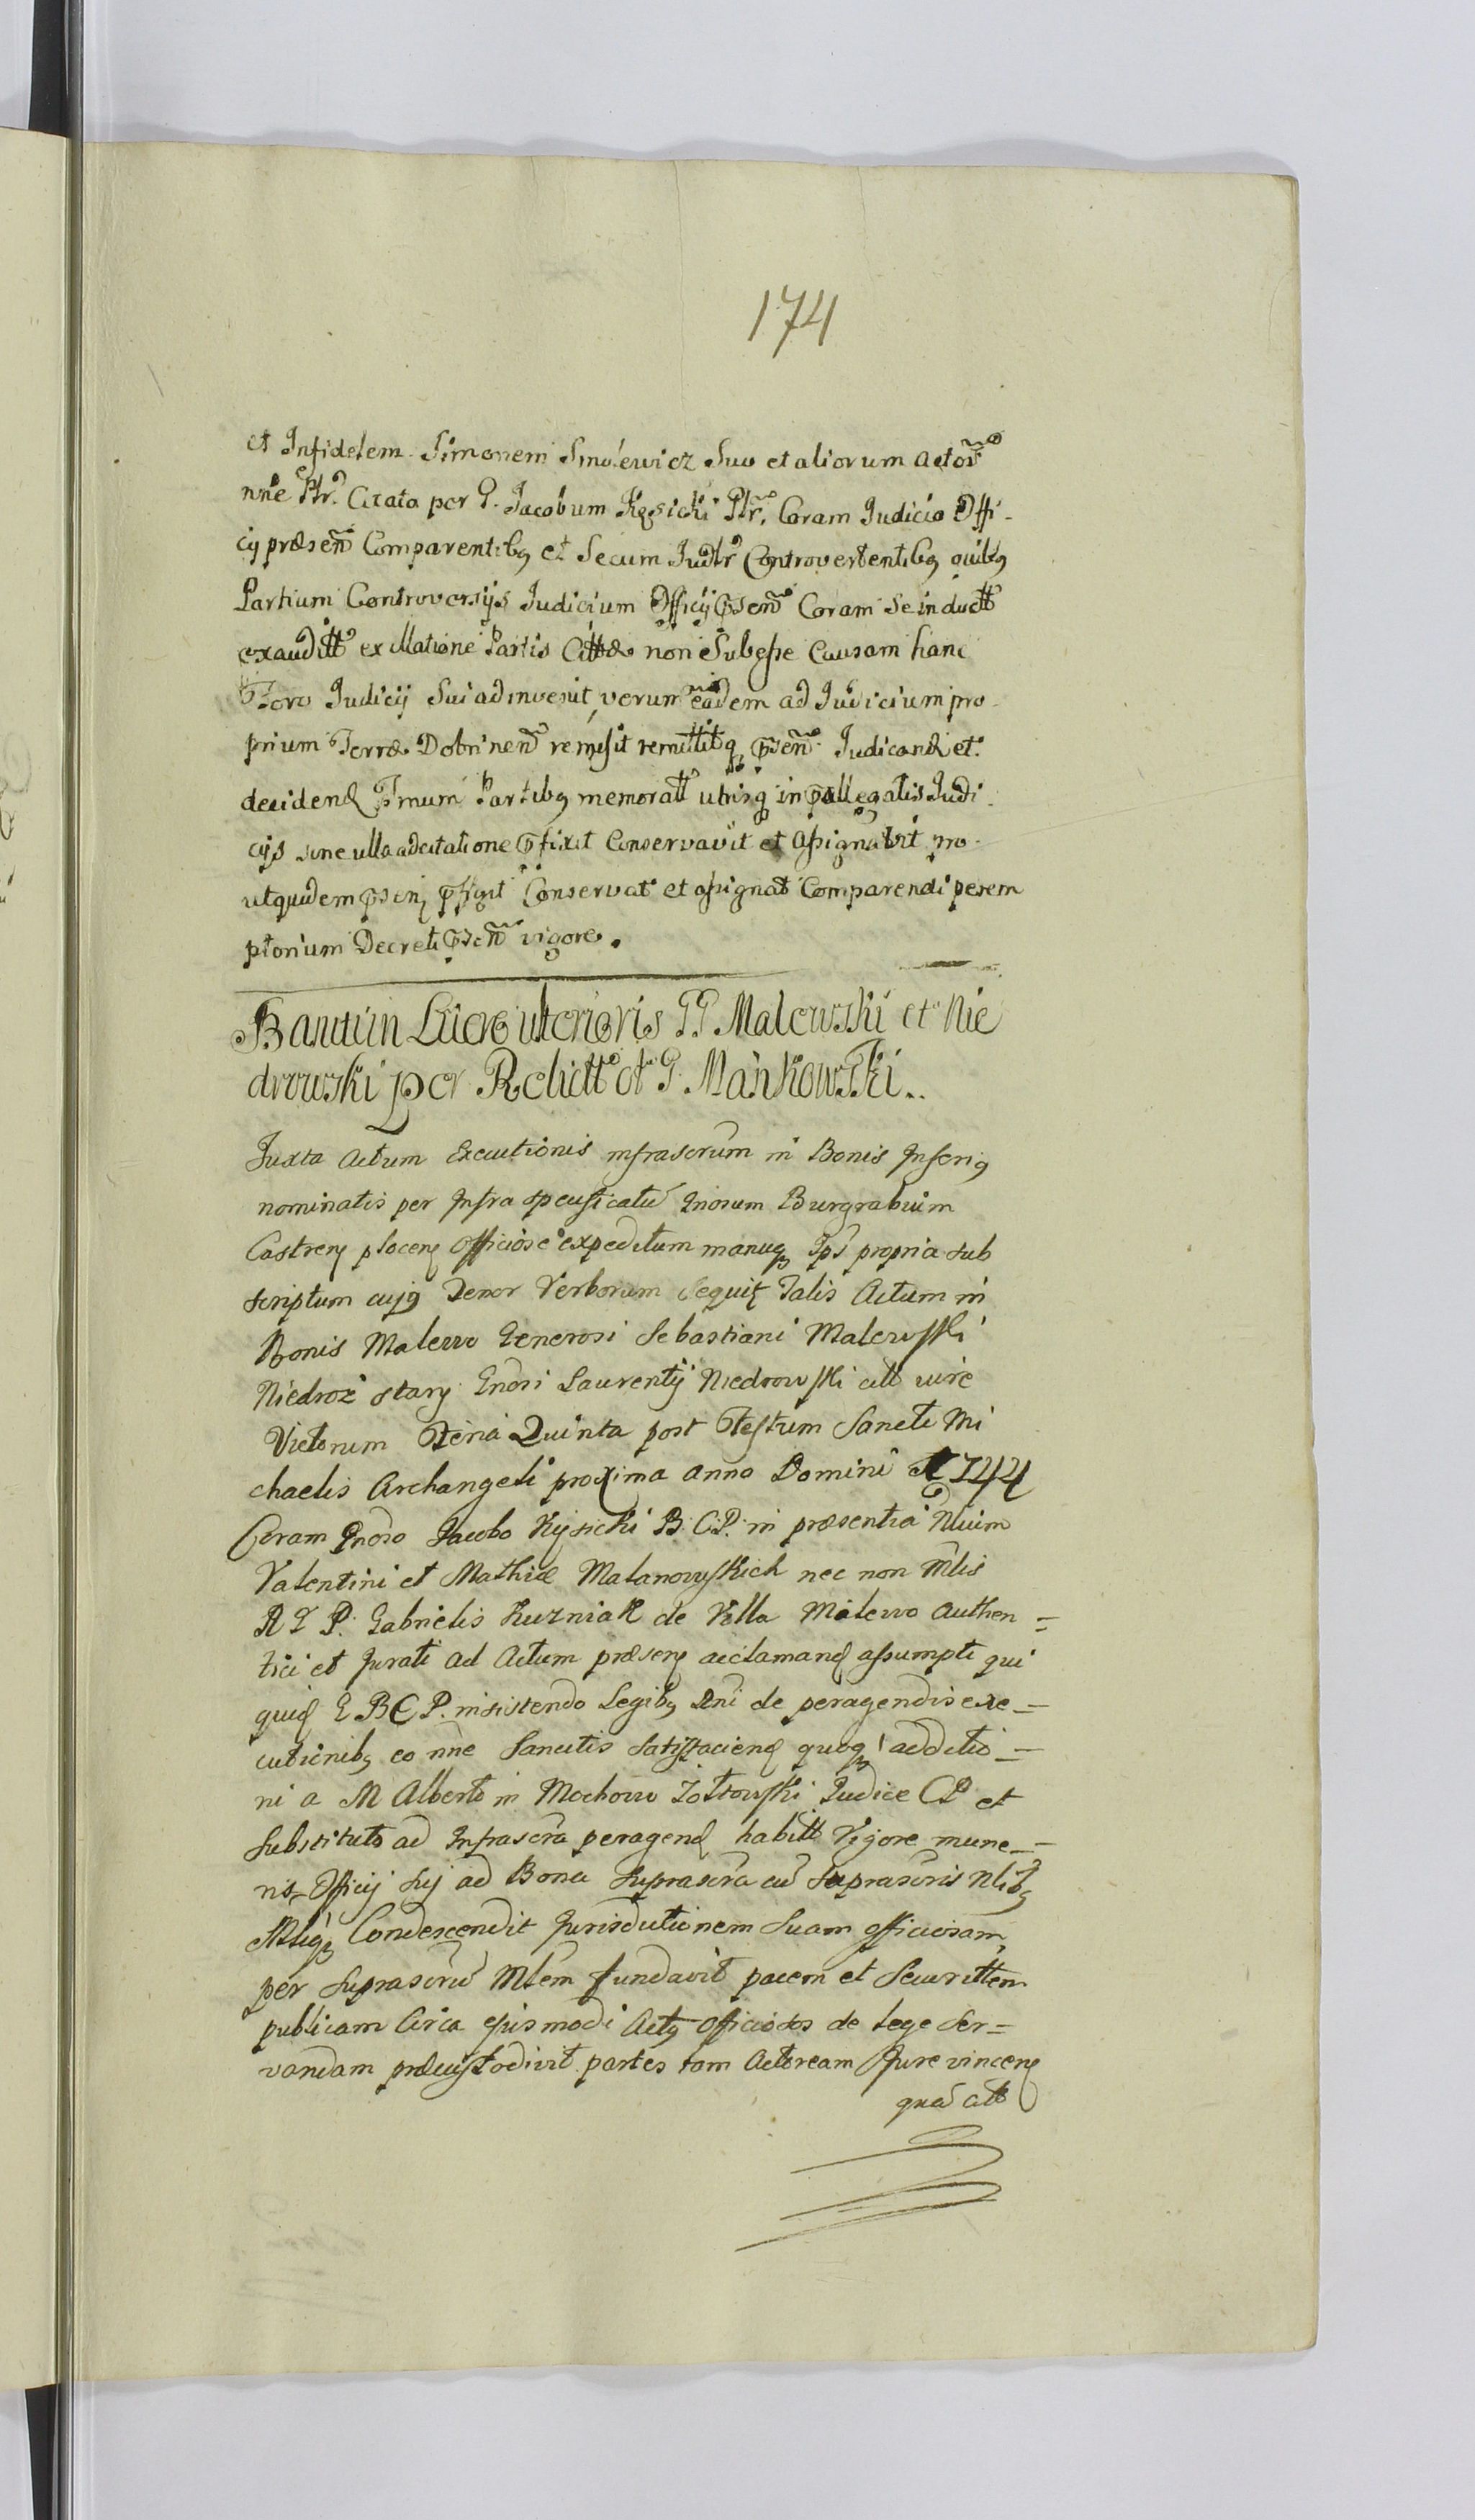 174
et Infidelem Simonem Smolewicz Suo et aliorum actor
nne Ptr. Citata per G. Jacobum Kęsicki Ptr. Coram Judicio Offi-
cij præsen Comparentibq et Secum Judlr Controvertentibq quibq
Partium Controversijs Judicium Officij psen Coram Se inductt
exauditt ex illatione Partis Cittæ non Subesse Causam hanc
Foro Judicij Sui adinvenit, verum eadem ad Judicium pro-
prium Terræ Dobrinen remisit remittitq psen Judicand et
decidend Tmum Partibq memoratt utrisq in pallegatis Judi
cijs sine ulla adcitatione pfixit Conservavit et assignavit pro-
ut quidem psenq pfigit Conservat et assignat Comparendi perem
ptorium Decreti psen vigore.
Banitiin Lucro ulterioris GG Malewski et Nie
drowski per Relictt et G. Mankowski..
Juxta Actum Executionis infrascrum in Bonis Inferiq
nominatis per Infra specificatu Gnosum Burgrabium
Castrenq plocenq Officiose expeditum manuq Ips propria sub
scriptum cujq Tenor Verborum sequit Talis Actum in
Bonis Malewo Generosi Sebastiani Malewski
Niedroż stary Gnosi Laurentij Niedrowski citt iure
Victorum Feria Quinta post Festum Sancti Mi
chaelis Archangeli proxima anno Domini 1744
Coram Gnoso Jacobo Kęsicki B. C. P. in præsentia Nlium
Valentini et Mathiæ Malanowskich nec non Mlis
R G P. Gabrielis Kuzniak de Villa Malewo Authen =
tici et Jurati ad Actum præsenq acclamand assumpti qui
quid G B C P. insistendo Legibq Rni de peragendis exe =
cutionibq eo nne Sancitis satisfaciend quoq additio =
ni a M Alberto in Mochowo Żołtowski Judice CP et
Substituto ad Infrascra peragend habitt Vigore mune =
ris Officij Sui ad Bona Suprascra cu Suprascris Nlibq
Mliq Condescendit Jurisdictionem Suam officiosam
per Suprascru Mlem fundavit pacem et Securittem
publicam Circa ejusmodi Actq officiosos de lege Ser =
vandam præcustodivit partes tam Actoream Jure vincenq
qua citt